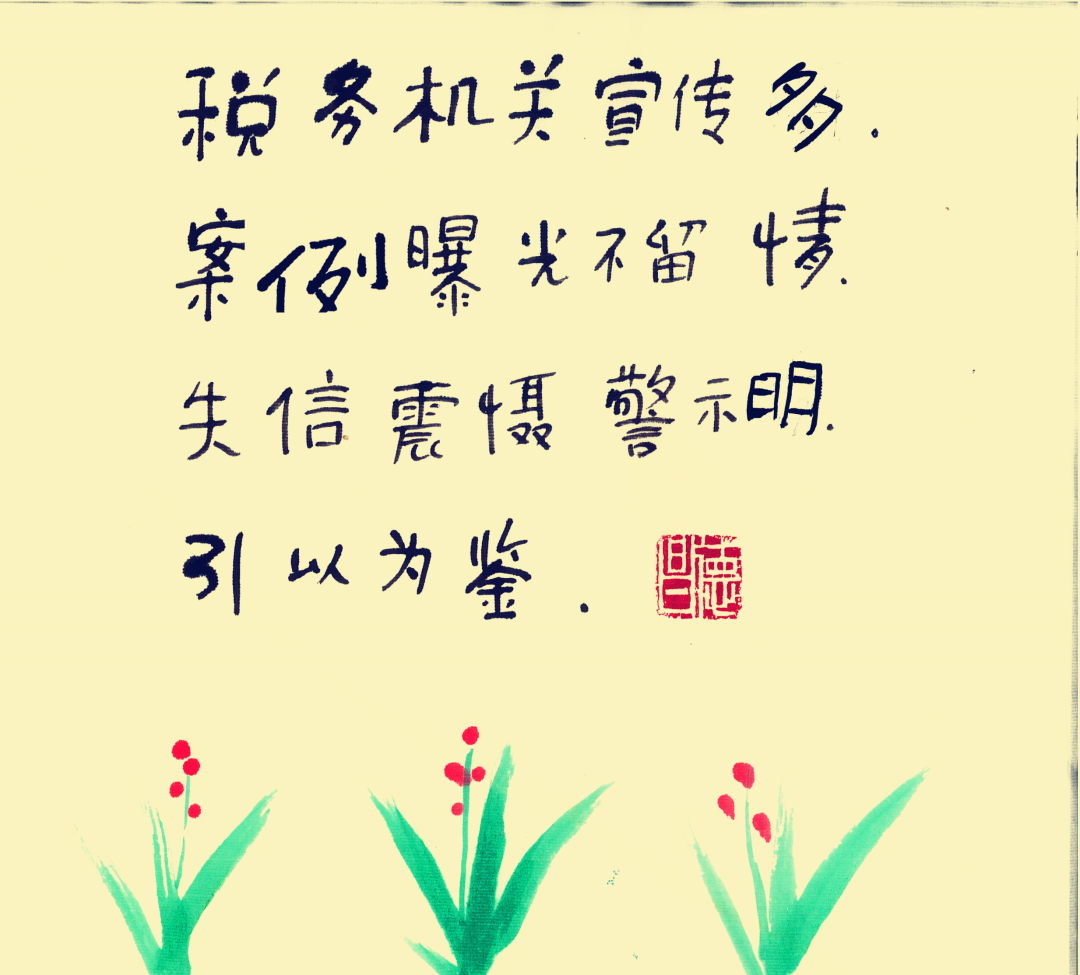 税务机关宣传多.
案例曝光不留情.
失信震慑警示明.
引以为鉴.